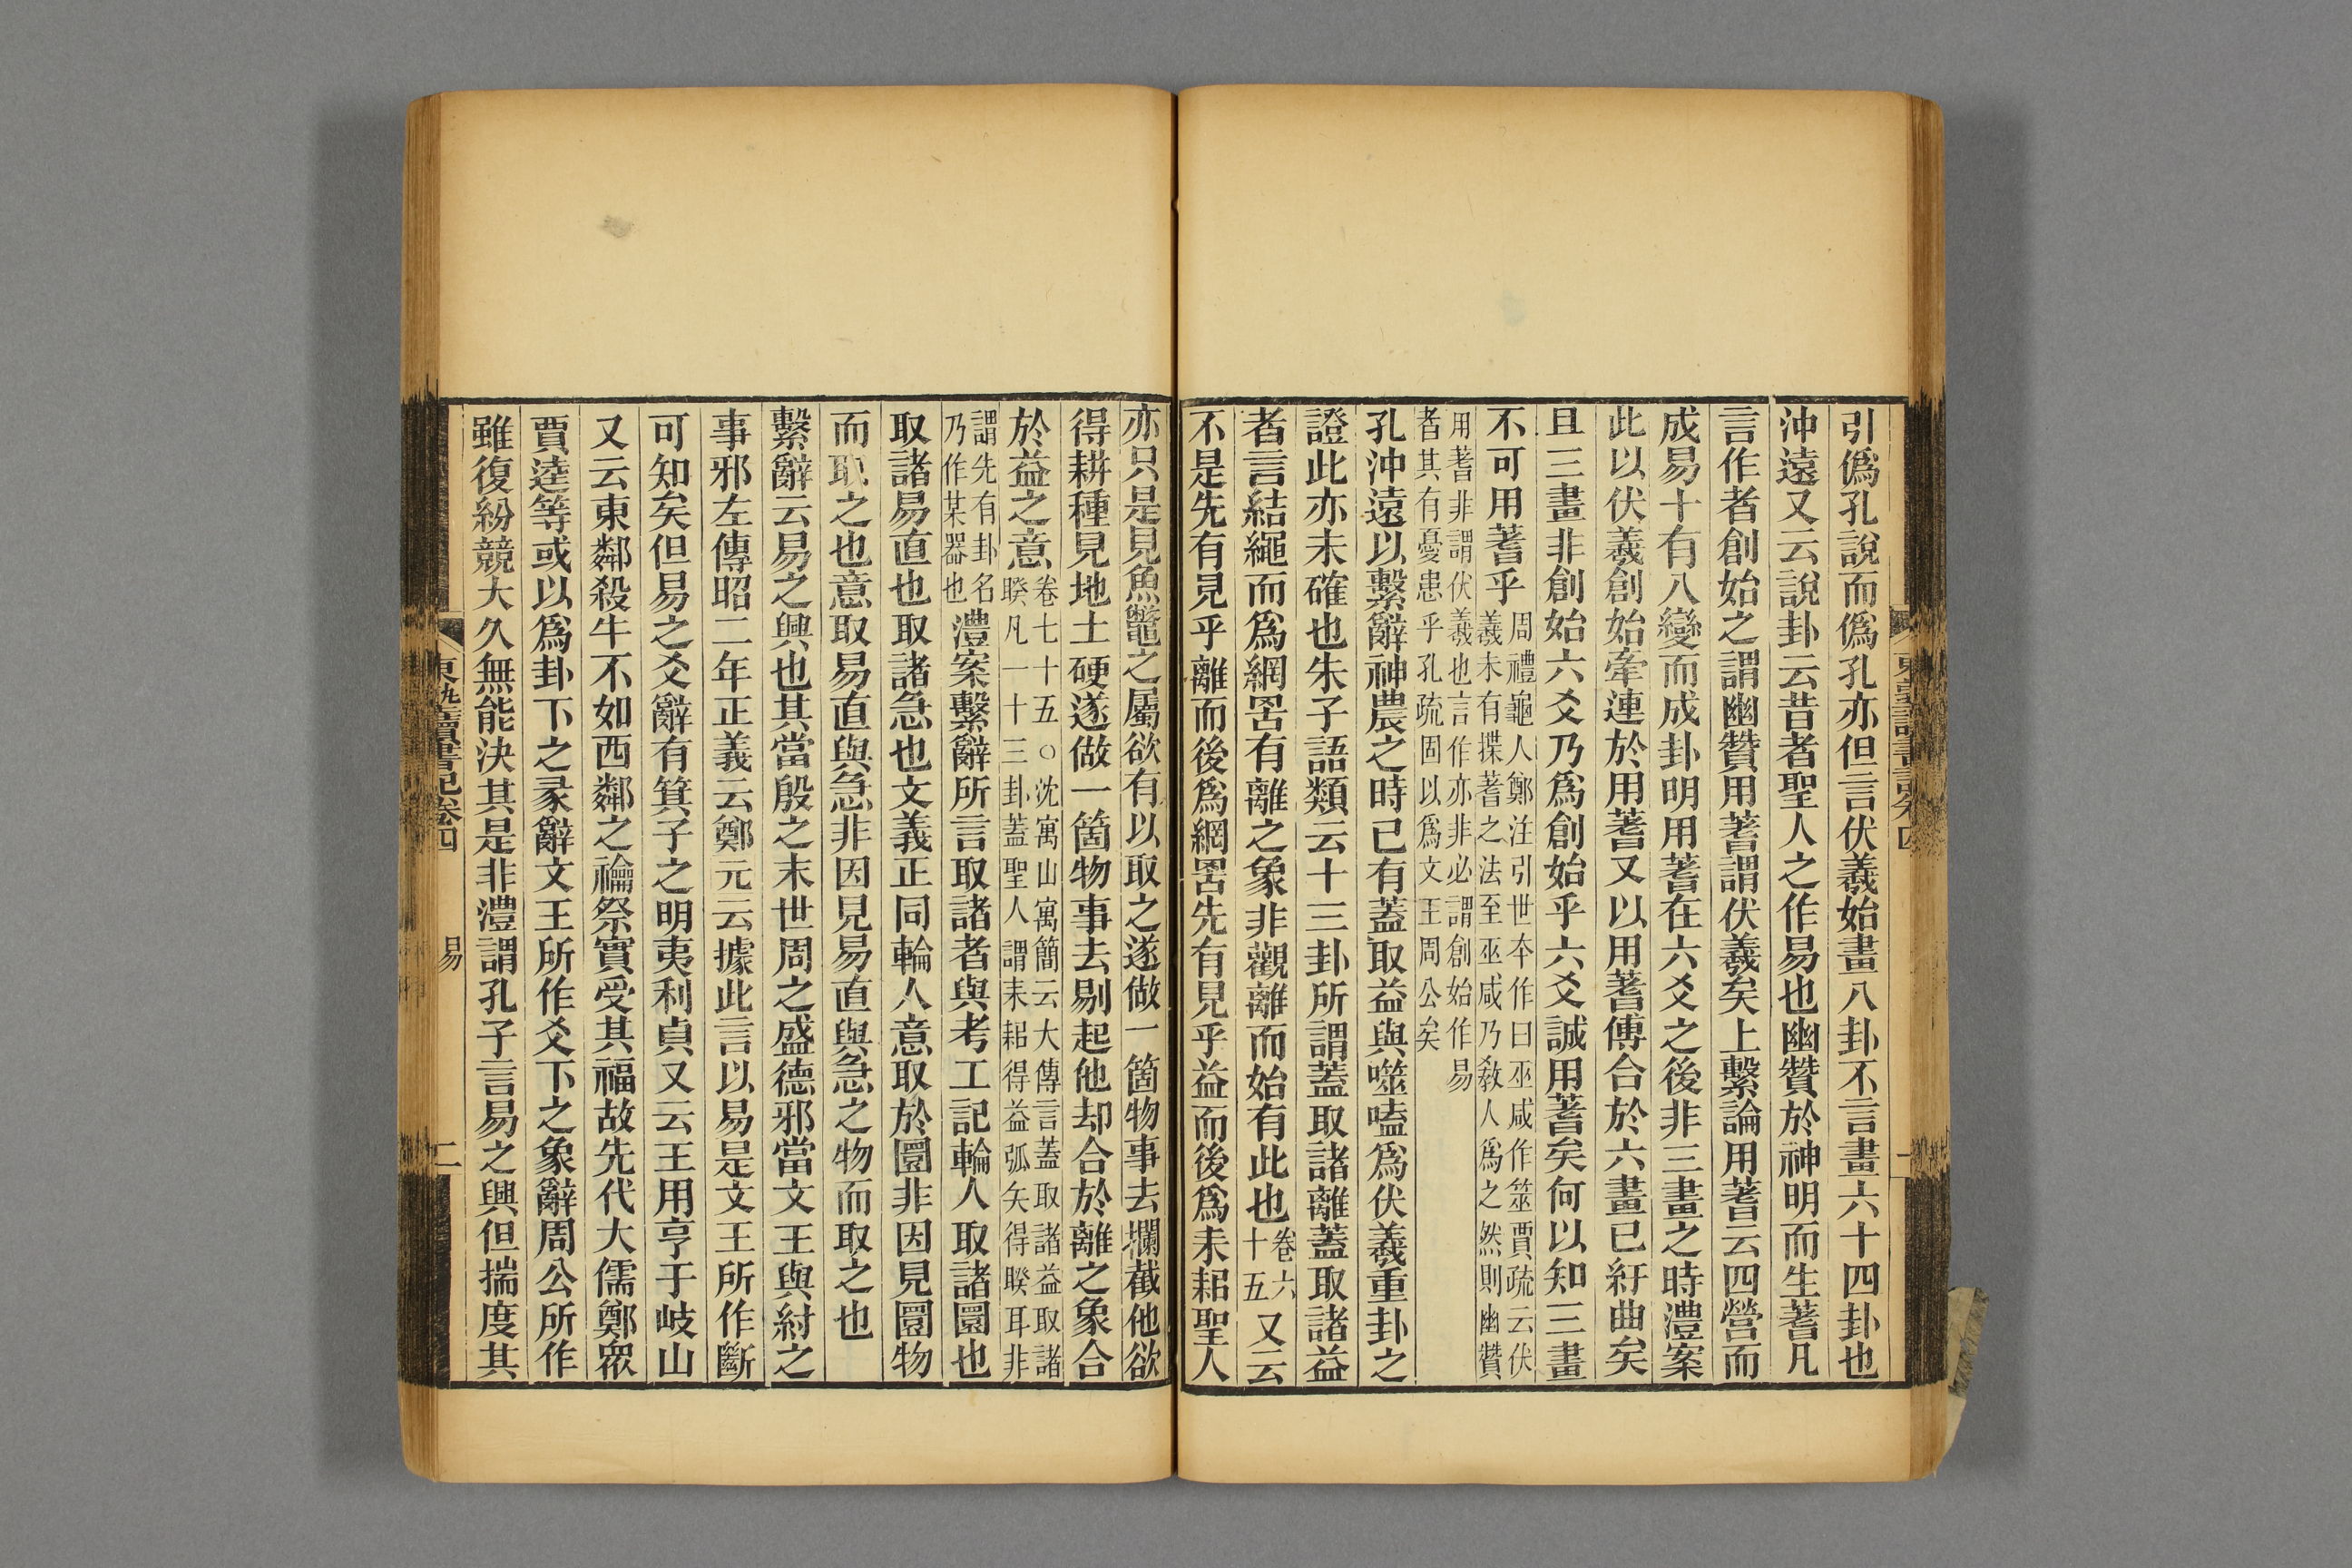 引僞孔說而僞孔亦但言伏羲始畫八卦不言畫六十四卦也
沖遠又云說卦云昔者聖人之作易也幽贊於神明而生蓍凡
言作者創始之謂幽贊用蓍謂伏羲矣上繫論用蓍云四營而
成易十有八變而成卦明用蓍在六爻之後非三畫之時澧案
此以伏羲創始牽連於用蓍又以用蓍傅合於六畫已紆曲矣
且三畫非創始六爻乃爲創始乎六爻誠用蓍矣何以知三畫
不可用蓍乎
周禮龜人鄭注引世本作曰巫咸作筮賈疏云伏
羲未有揲蓍之法至巫咸乃敎人爲之然則幽贊
用蓍非謂伏羲也言作亦非必謂創始作易
者其有憂患乎孔疏固以爲文王周公矣
孔沖遠以繫辭神農之時已有蓋取益與噬嗑爲伏羲重卦之
證此亦未確也朱子語類云十三卦所謂蓋取諸離蓋取諸益
者言結繩而爲網罟有離之象非觀離而始有此也
卷六
十五
又云
不是先有見乎離而後爲網罟先有見乎益而後爲耒耜聖人
亦只是見魚鼈之屬欲有以取之遂做一箇物事去攔截他欲
得耕種見地土硬遂做一箇物事去剔起他却合於離之象合
於益之意
卷七十五○沈寓山寓簡云大傳言蓋取諸益取諸
睽凡一十三卦蓋聖人謂耒耜得益弧矢得睽耳非
謂先有卦名
乃作某器也
澧案繫辭所言取諸者與考工記輪人取諸圜也
取諸易直也取諸急也文義正同輪人意取於圜非因見圜物
而取之也意取易直與急非因見易直與急之物而取之也
繫辭云易之興也其當殷之末世周之盛德邪當文王與紂之
事邪左傳昭二年正義云鄭元云據此言以易是文王所作斷
可知矣但易之爻辭有箕子之明夷利貞又云王用亨于岐山
又云東鄰殺牛不如西鄰之禴祭實受其福故先代大儒鄭衆
賈逵等或以爲卦下之彖辭文王所作爻下之象辭周公所作
雖復紛競大久無能決其是非澧謂孔子言易之興但揣度其
東塾讀書記卷四
易
二